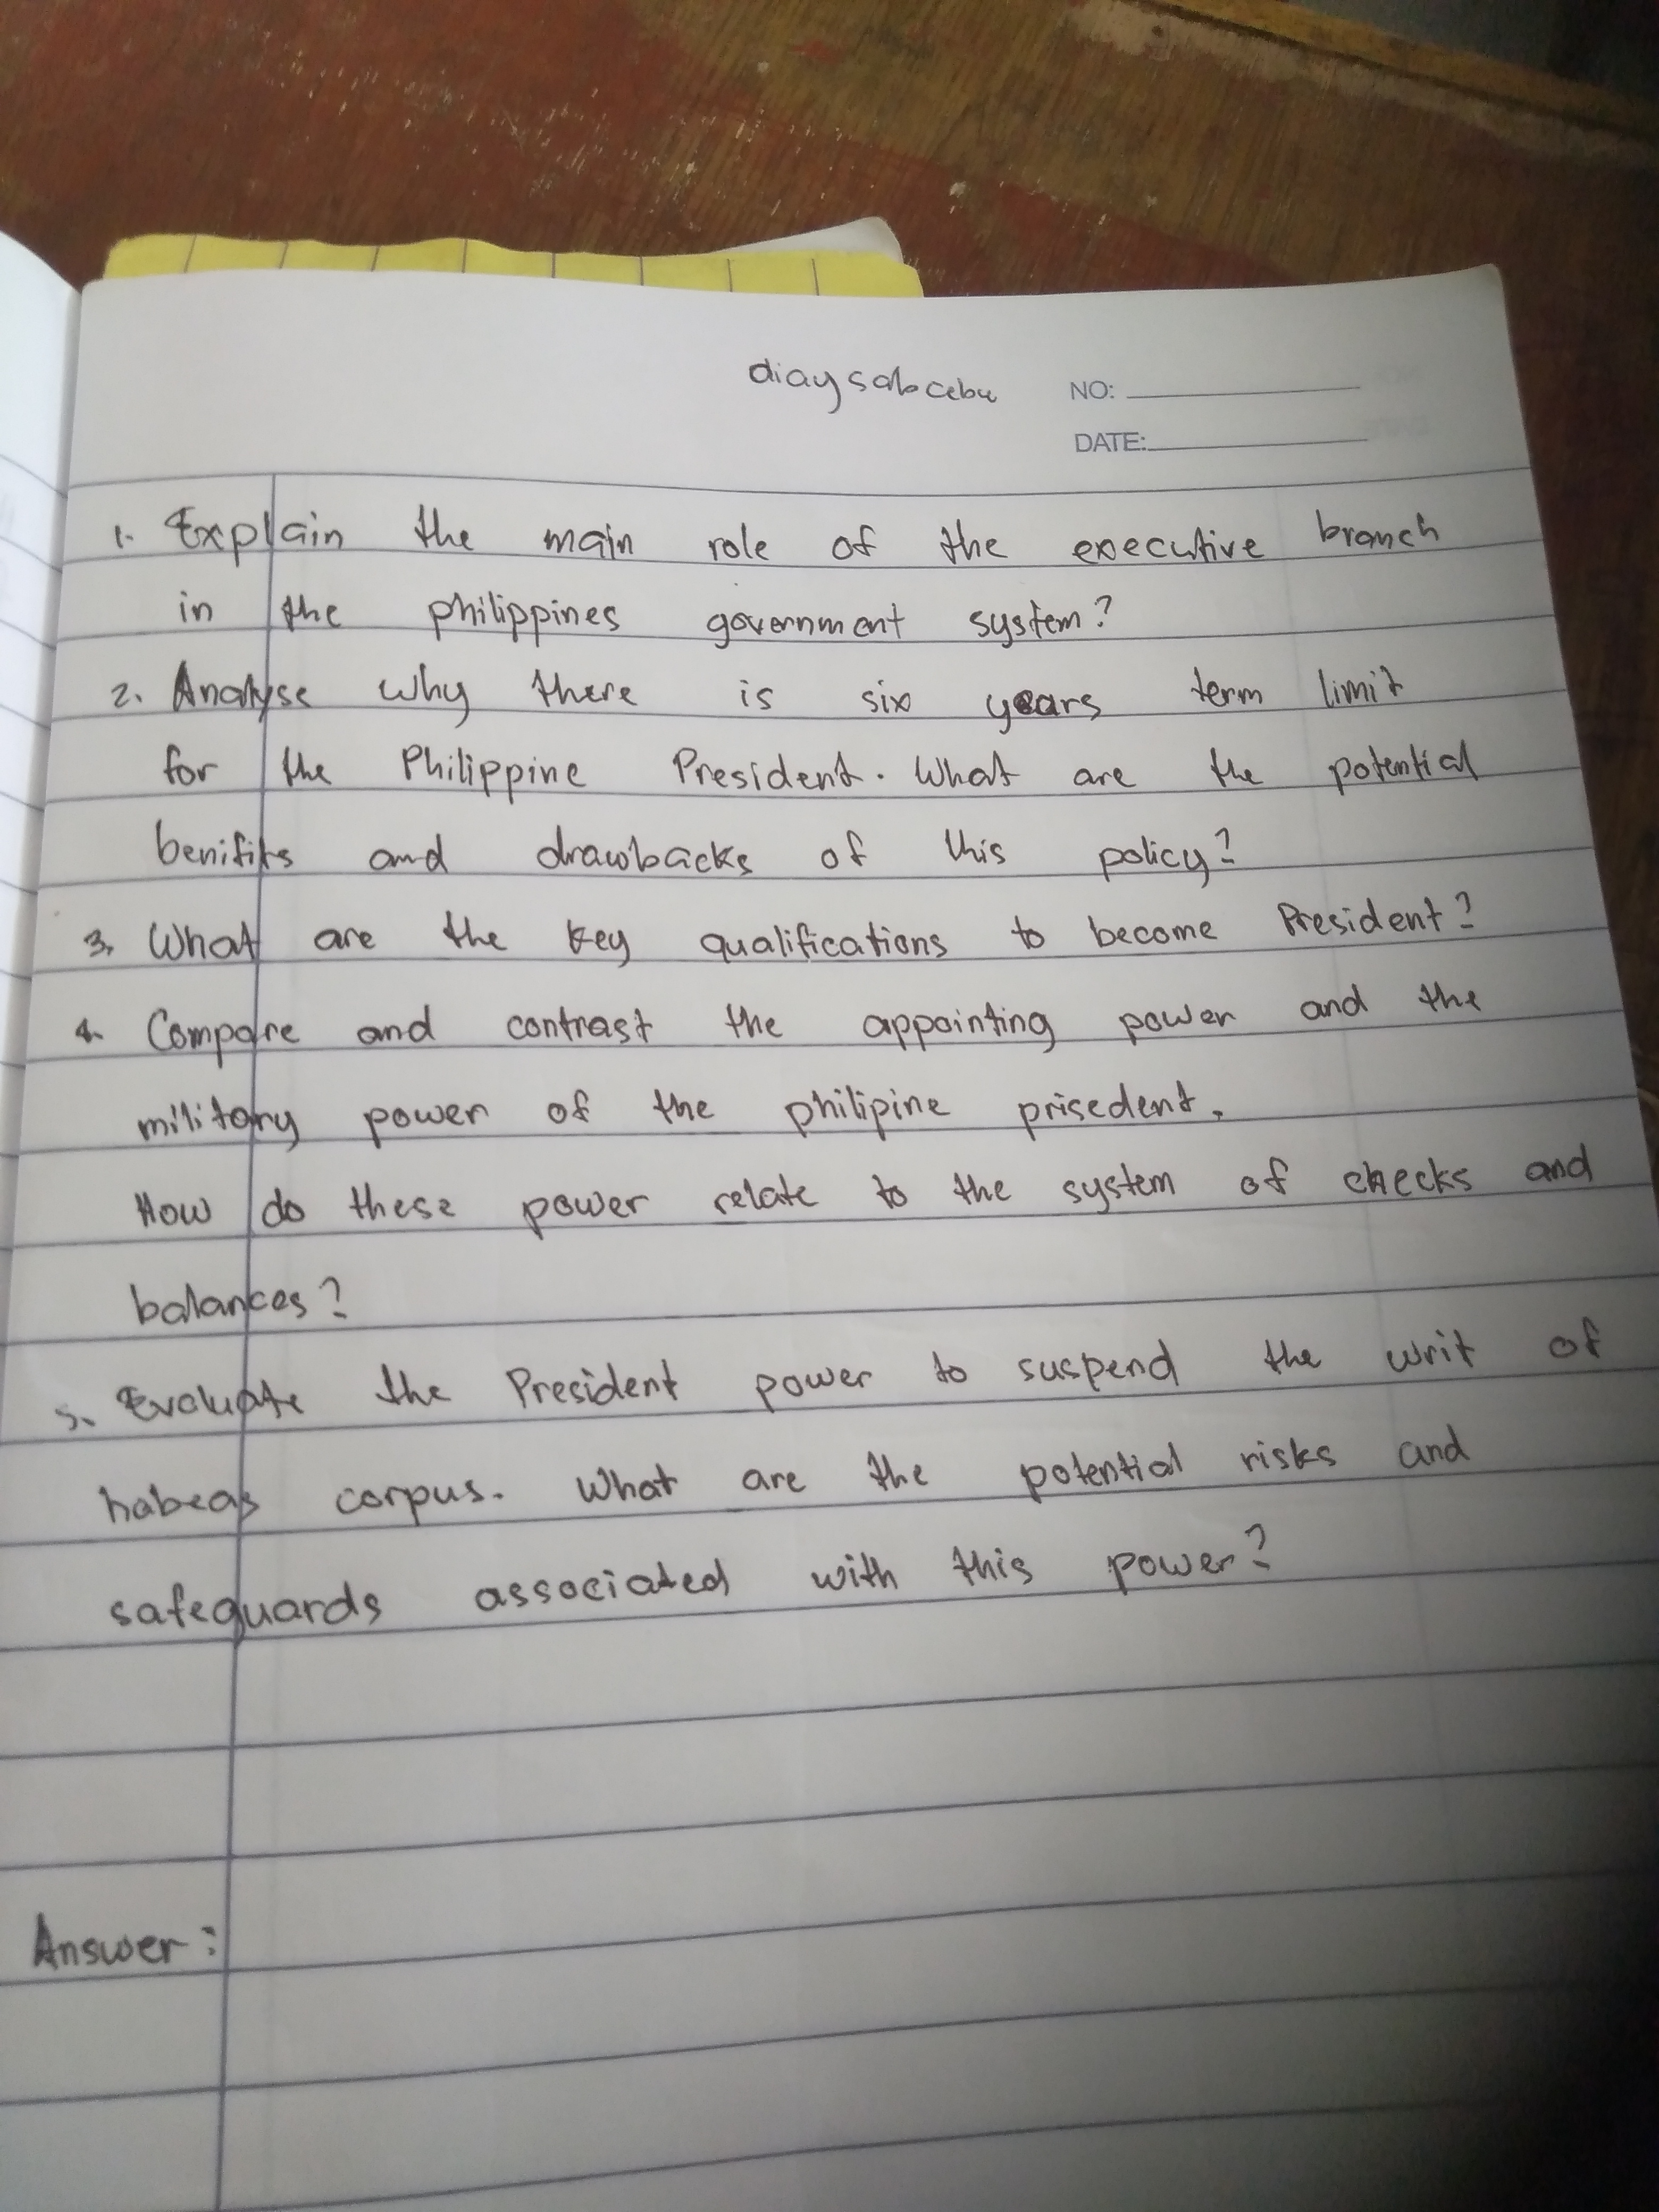 diay sab cebu
NO:
DATE:
1. Explain the main role of the executive branch
in the philippines government system?
2. Analyse why there is six years term limit
for the Philippine President. What are the potential
benifits and drawbacks of this policy?
3. What are the key qualifications to become President?
4. Compare and contrast the appointing power and the
military power of the philipine prisedent.
How do these power relate to the system of checks and
balances?
5. Evaluate the President power to suspend the writ of
habeas corpus. What are the potential risks and
safeguards associated with this power?
Answer: